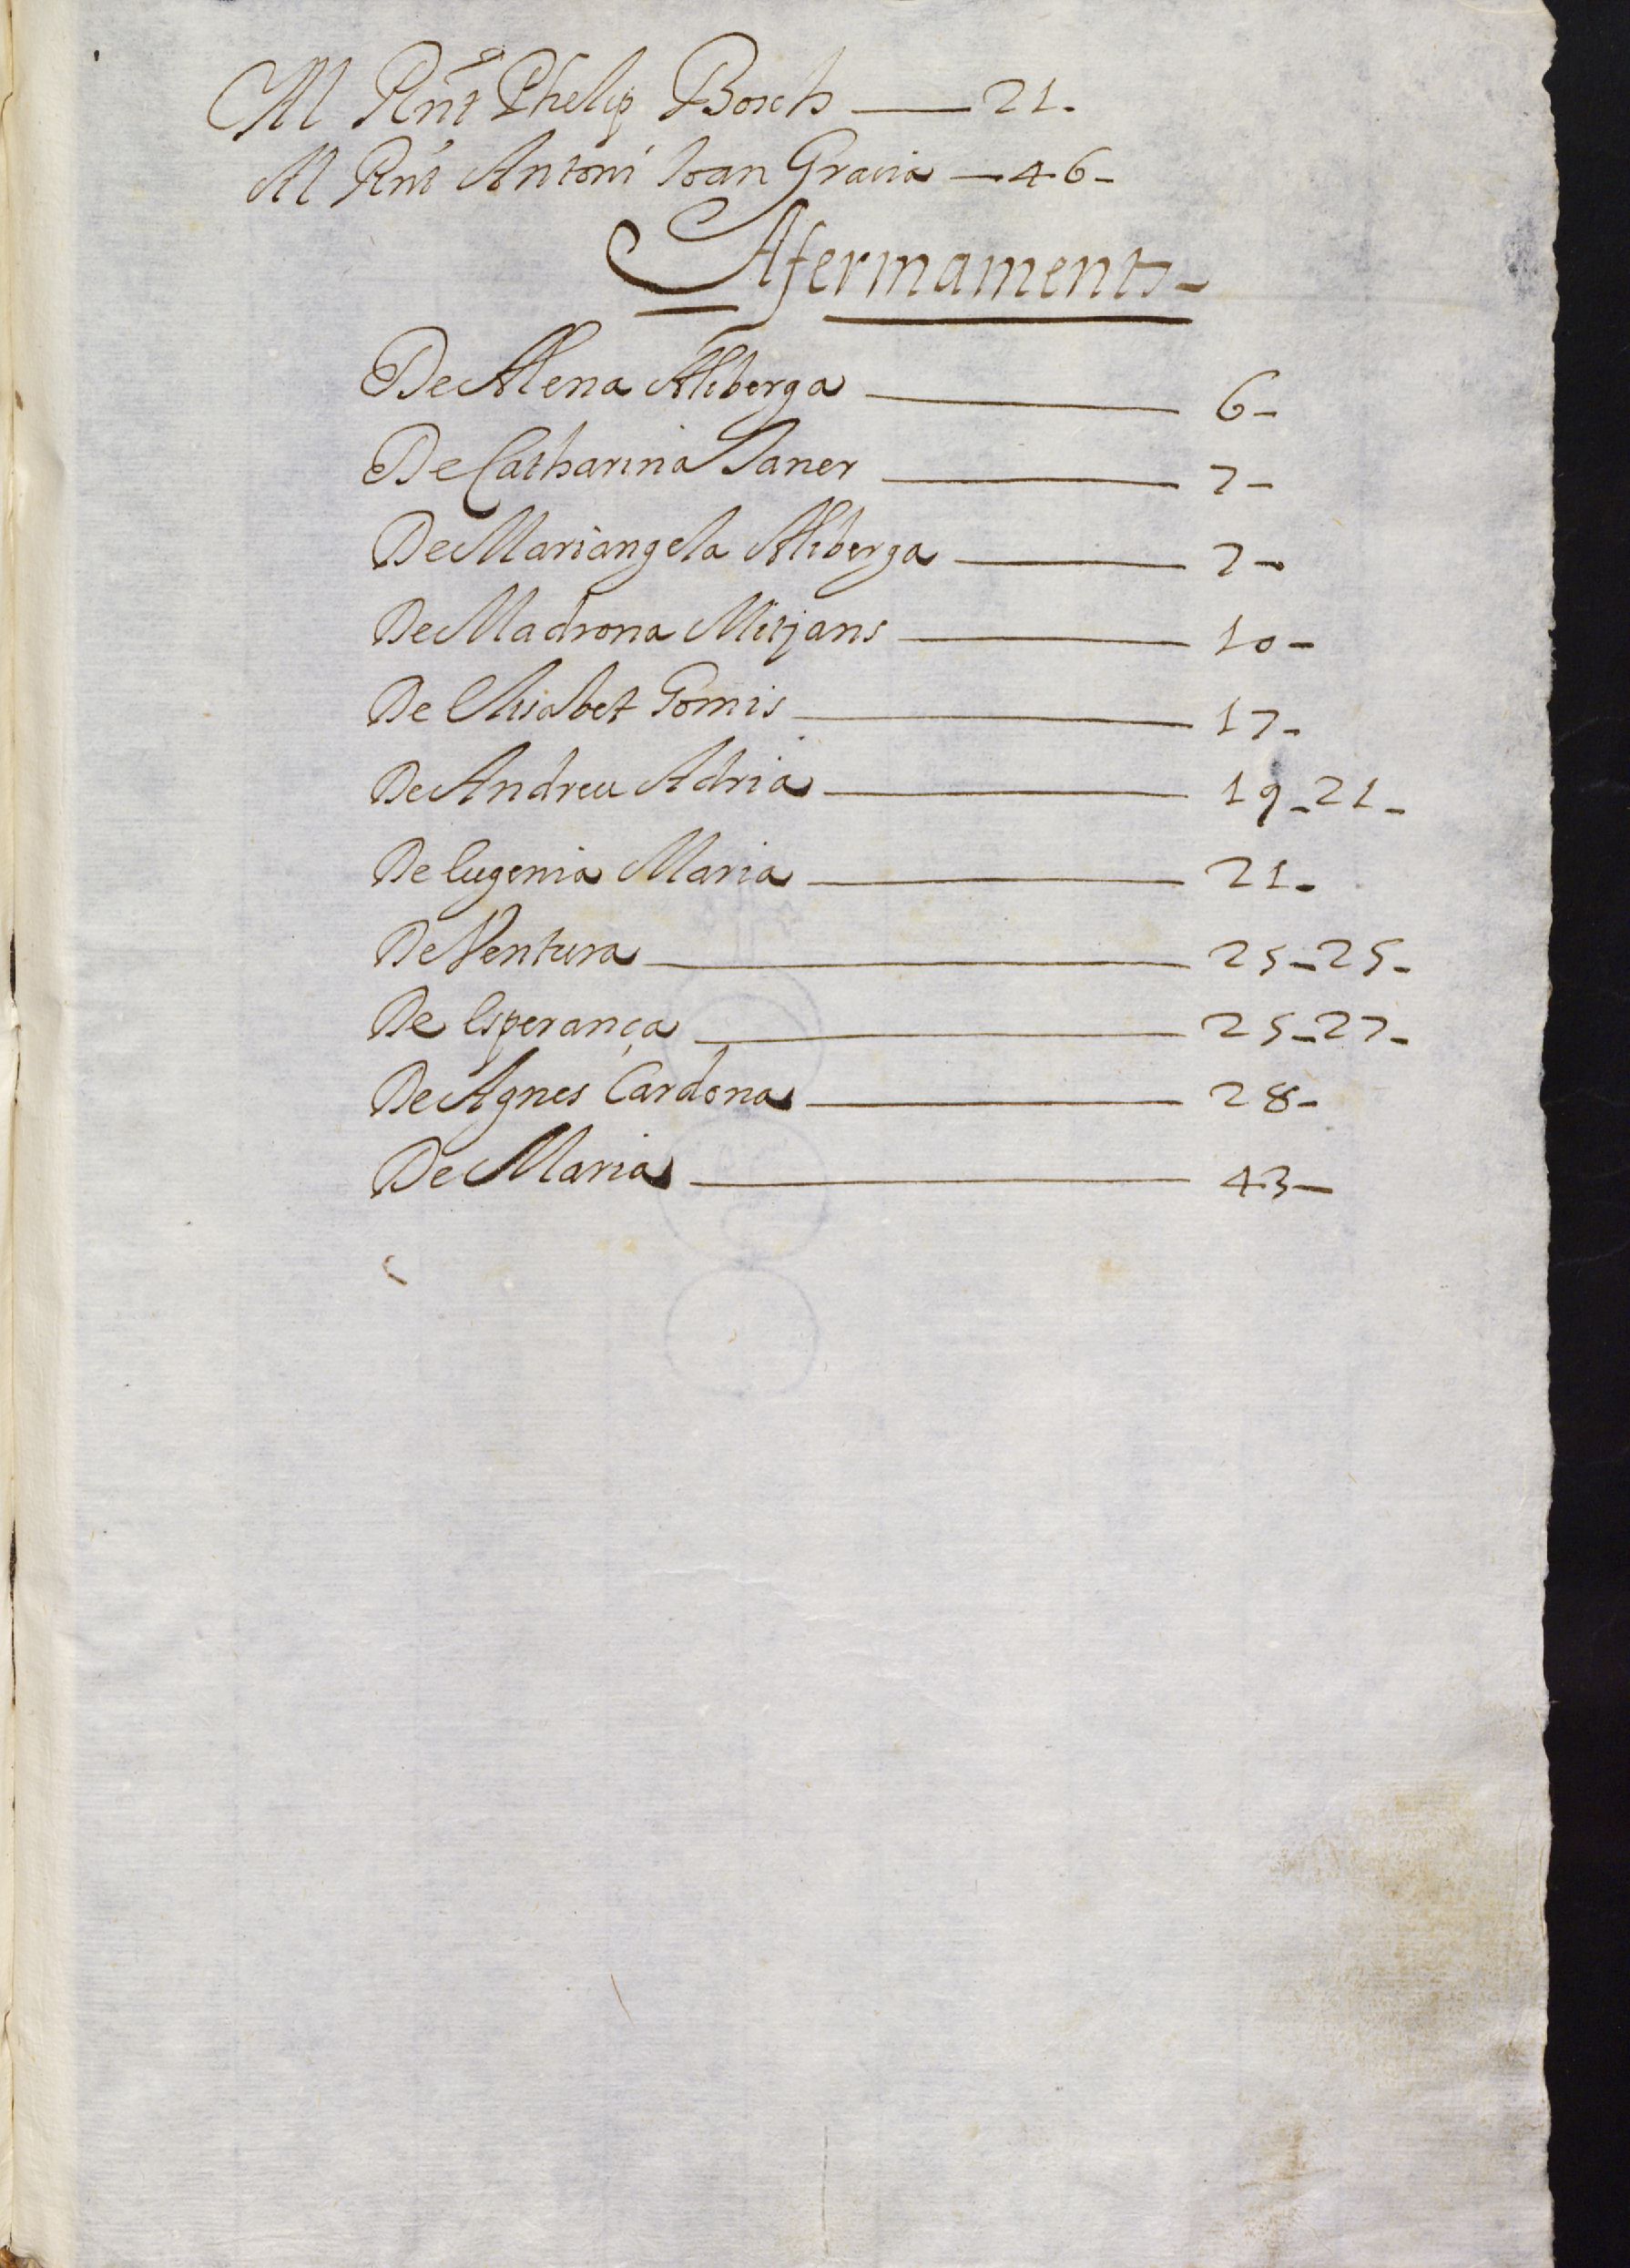 Al Rnt Phelip Bosch — 21-
Al Rnt Antoni Joan Gracia — 46-
Afermaments-
De Alena Aliberga — 6-
De Catharina Janer — 7-
De Mariangela Aliberga — 7-
De Madrona Mitjans — 10-
De Elisabet Gomis — 17-
De Andreu Adria — 19-21-
De Eugenia Maria — 21-
De Ventura — 25-25-
De Esperança — 25-27-
De Agnes Cardona — 28-
De Maria — 43-